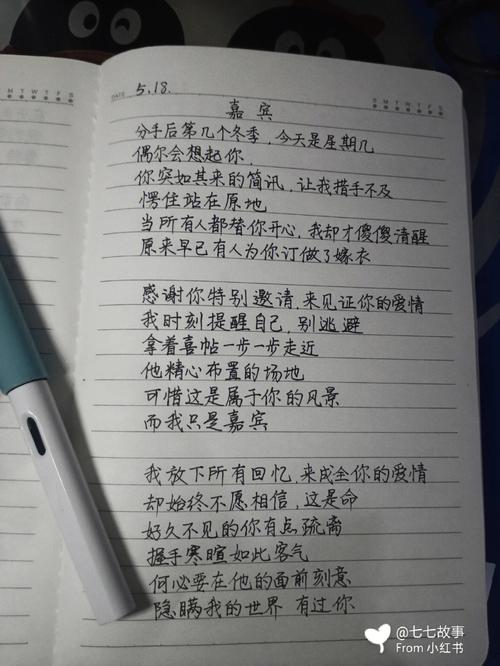 M T W T F S
DATE 5.18.
S M T W T F S
嘉宾
分手后第几个冬季，今天是星期几
偶尔会想起你，
你突如其来的简讯，让我措手不及
愣住站在原地
当所有人都替你开心，我却才傻傻清醒
原来早已有人为你订做了嫁衣
感谢你特别邀请，来见证你的爱情
我时刻提醒自己，别逃避
拿着喜帖一步一步走近
他精心布置的场地
可惜这是属于你的风景
而我只是嘉宾
我放下所有回忆，来成全你的爱情
却始终不愿相信，这是命
好久不见的你有点疏离
握手寒暄如此客气
何必要在他的面前刻意
隐瞒我的世界 有过你
@七七故事
From 小红书